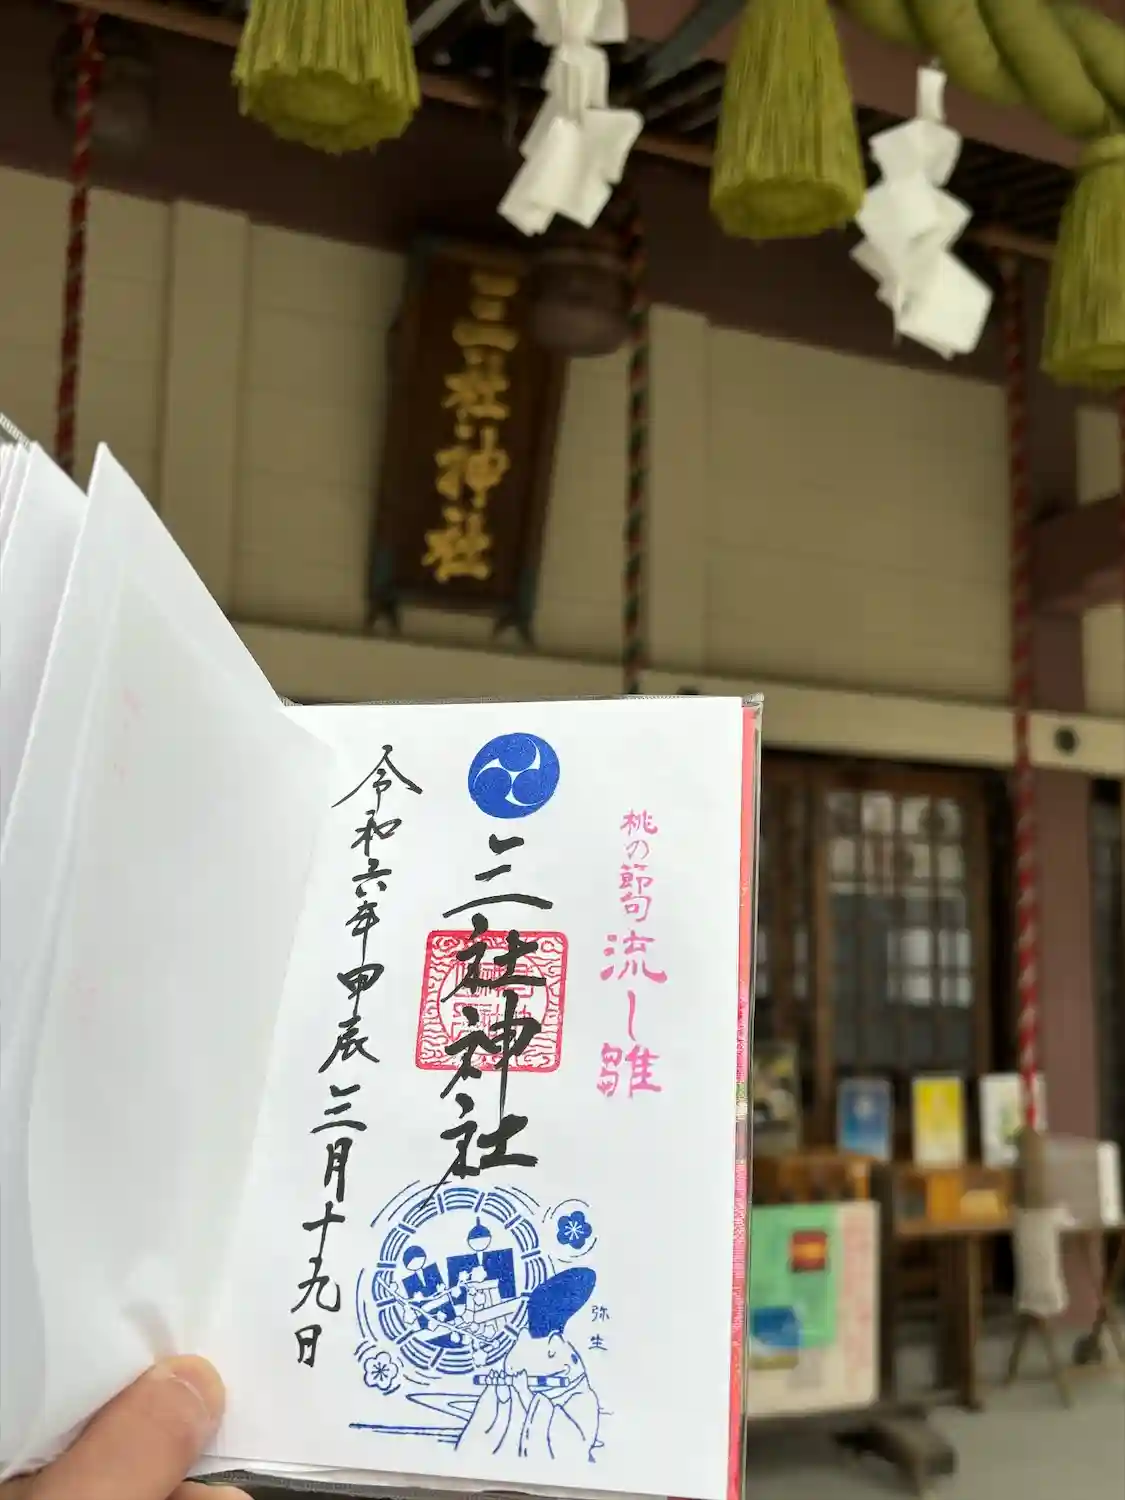 三社神社
桃の節句 流し雛
三社神社
令和六年甲辰三月十九日
弥生